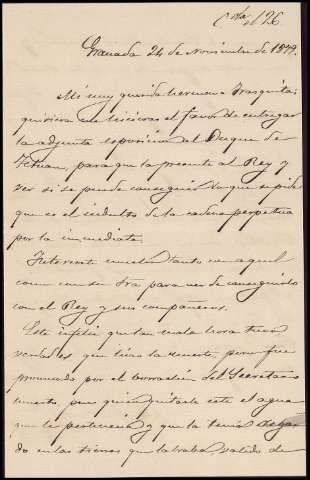 Granada 24 de Noviembre de 1879.
Mi muy querida hermana Frasquita:
quisiera me hicieras el favor de entregar
la adjunta esposicion al Duque de
Tetuan, para que la presente al Rey y
ver si se puede conseguir lo que se pide
que es el indulto de la cadena perpetua
por la inmediata.
Interesate mucho tanto con aquel
como con su tra para ver de conseguirlo
con el Rey y sus compañeros.
Este infeliz que tan mala hora tuvo
verdad es que hizo la muerte, pero fue
provocado por el borrachin del Secretario
muerto, por quitarle este el agua
que le pertenecia y que la tenia
do en las tierras que labraba valido de